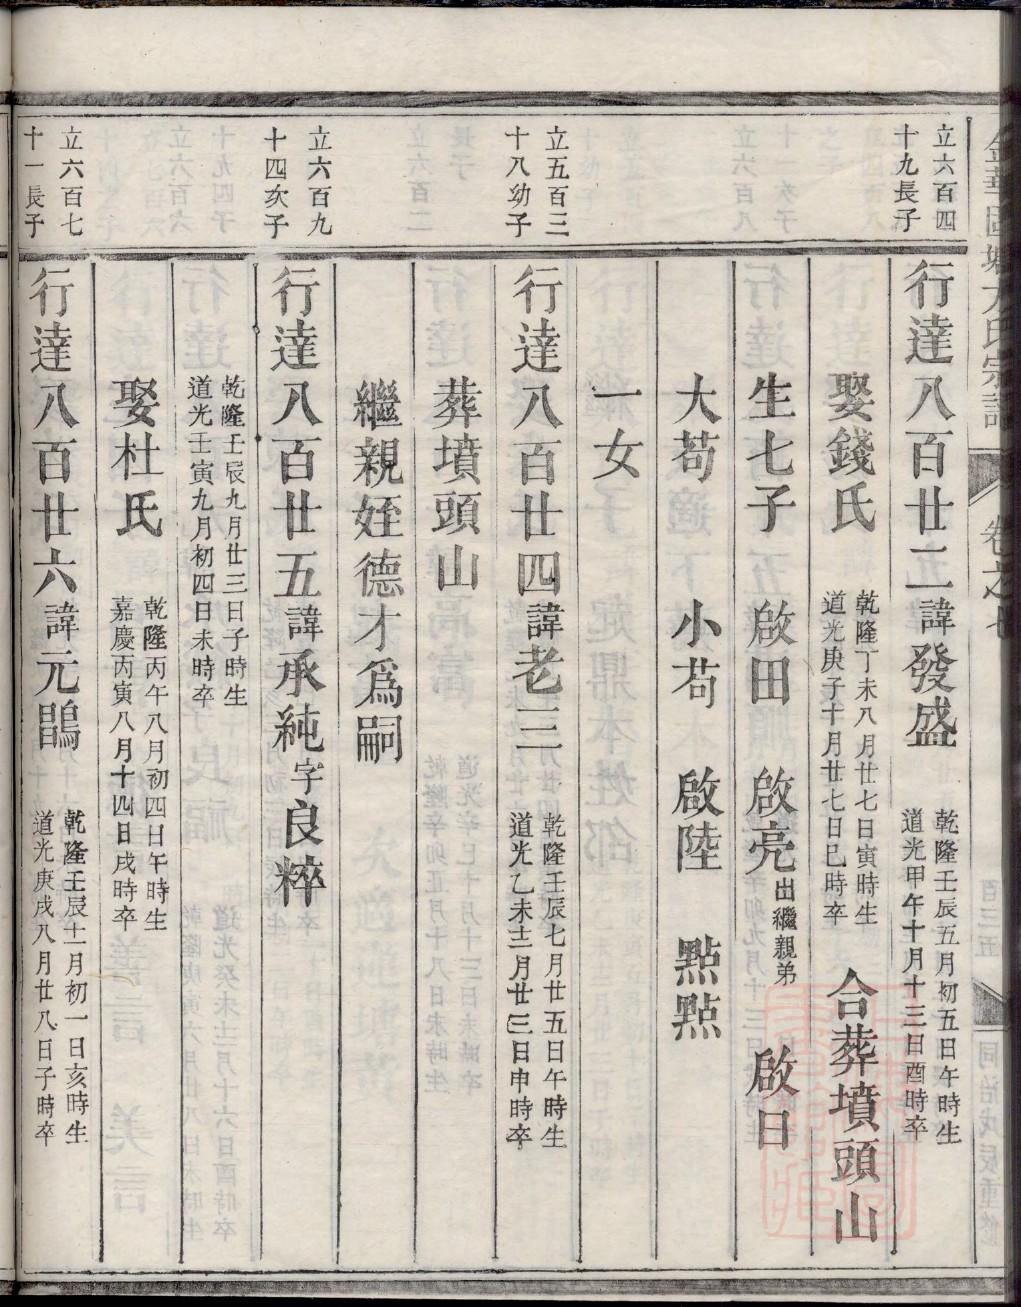 立六百四
十九長子
行達八百廿二諱發盛
乾隆壬辰五月初五日午時生
道光甲午十月十三日酉時卒
娶錢氏
乾隆丁未八月廿七日寅時生
道光庚子十月廿七日巳時卒
合葬墳頭山
生七子 啟田 啟亮出繼親弟 啟日
大苟 小苟 啟陸 點點
一女
立五百三
十八幼子
行達八百廿四諱老三
乾隆壬辰七月廿五日午時生
道光乙未十二月廿三日申時卒
葬墳頭山
繼親姪德才爲嗣
立六百九
十四次子
行達八百廿五諱承純字良粹
乾隆壬辰九月廿三日子時生
道光壬寅九月初四日未時卒
娶杜氏
乾隆丙午八月初四日午時生
嘉慶丙寅八月十四日戌時卒
立六百七
十一長子
行達八百廿六諱元鵾
乾隆壬辰十二月初一日亥時生
道光庚戌八月廿八日子時卒